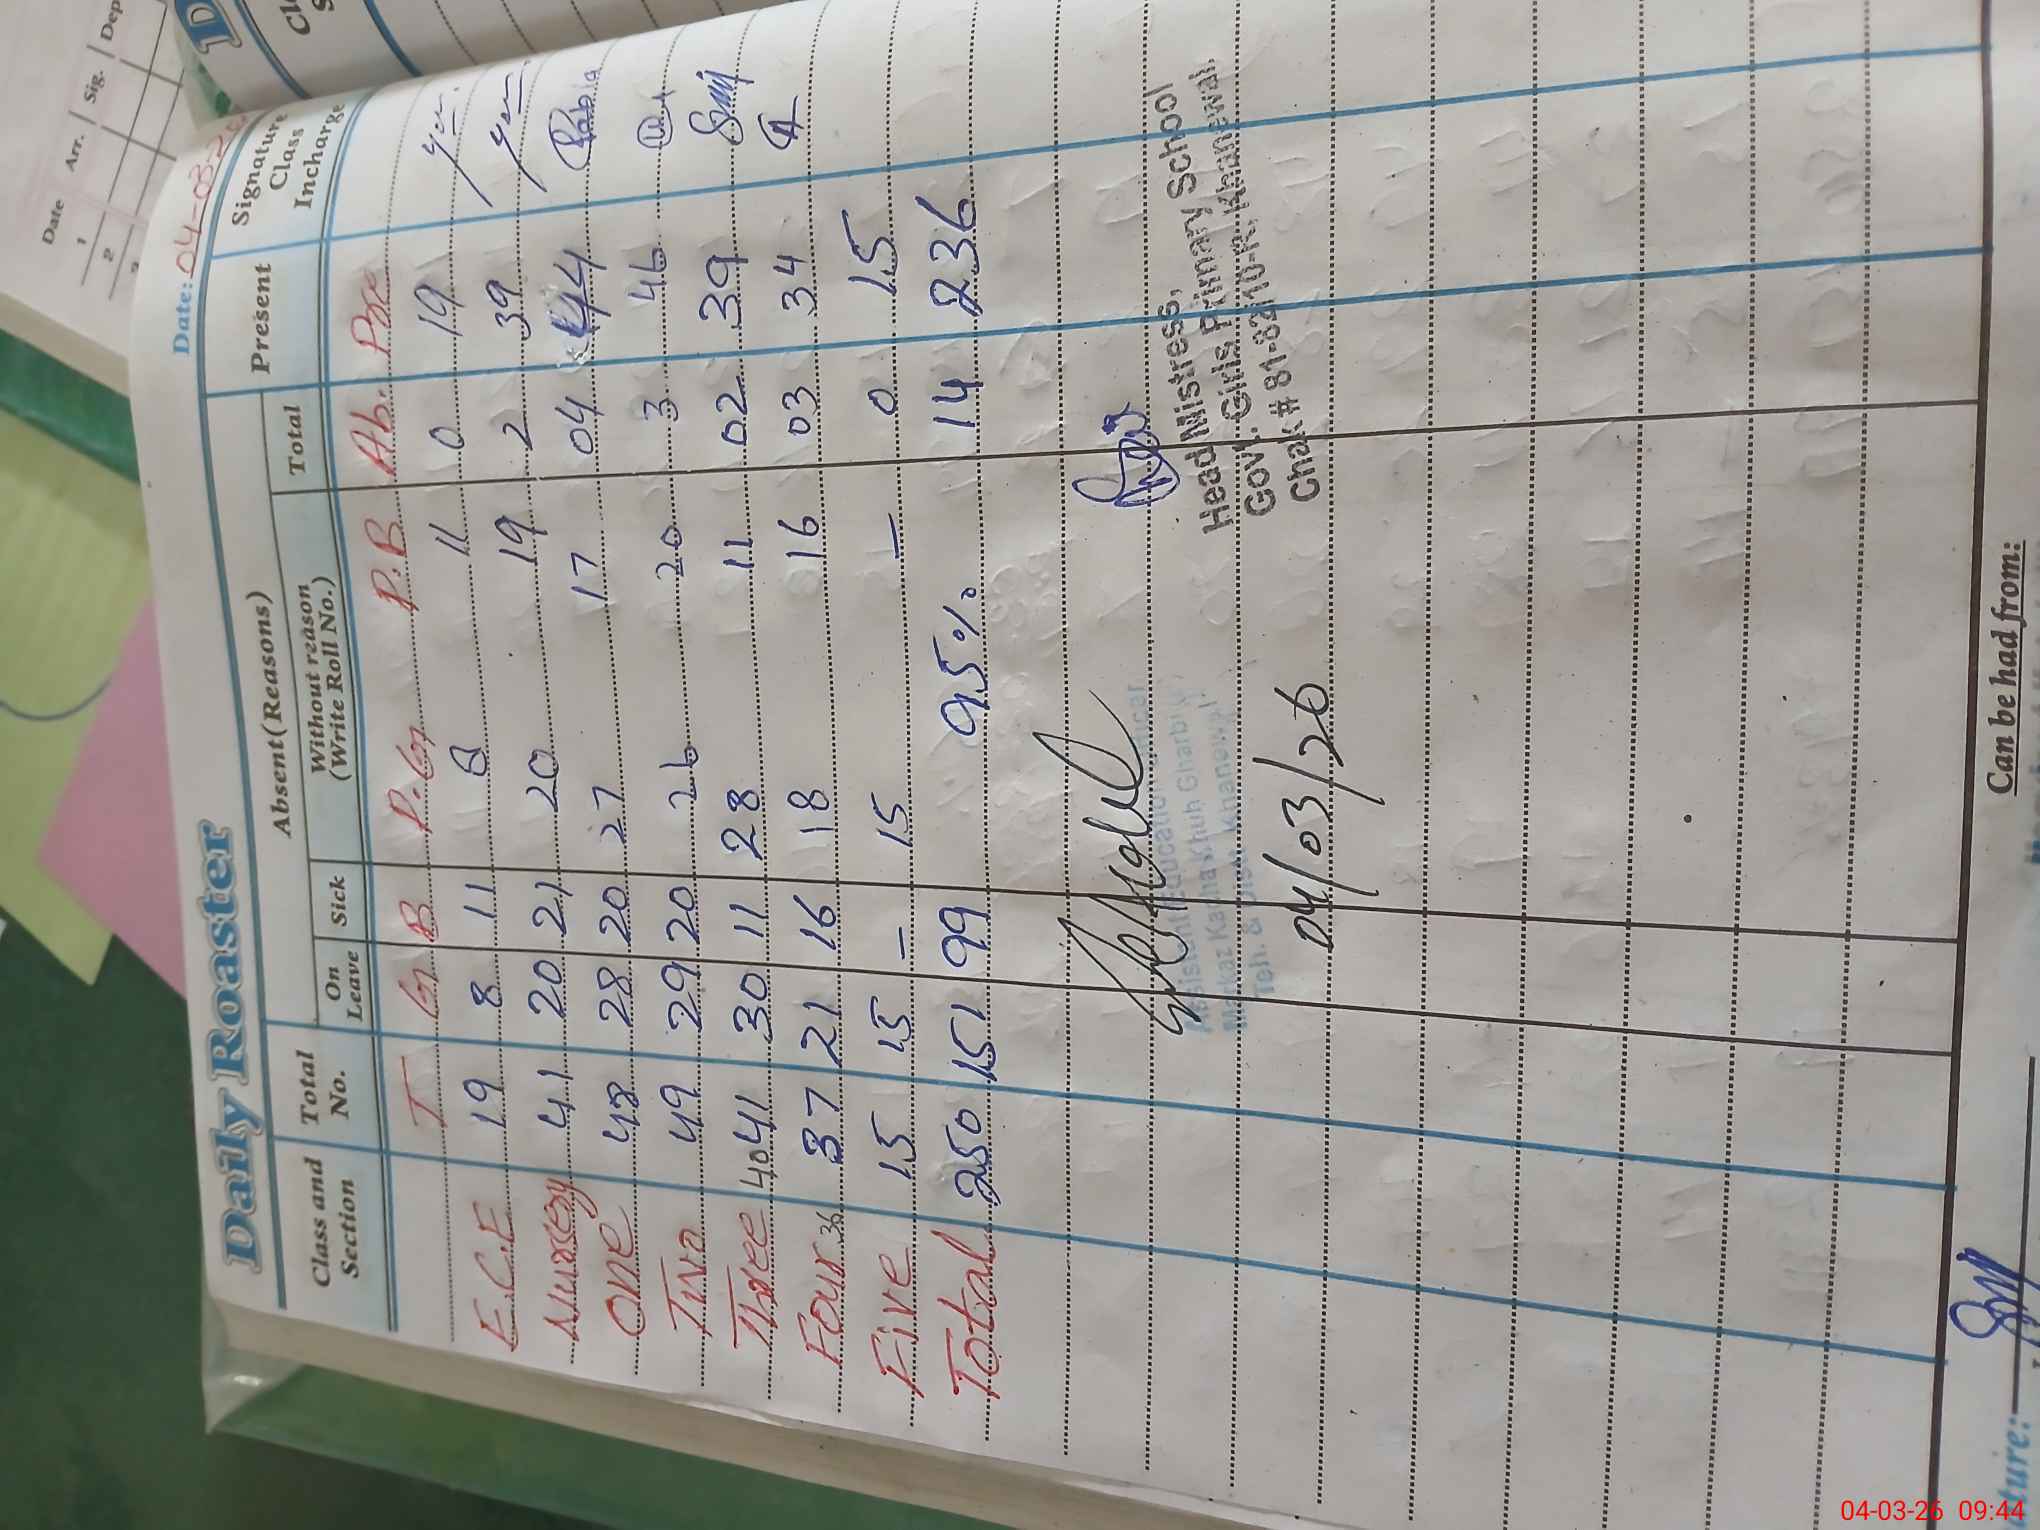 Date Arr. Sig. Dep
1
2
Daily Roaster
Date: 04-03-26
Class and Section
Total No.
Absent (Reasons)
Present
Signature Class Incharge
On Leave
Sick
Without reason (Write Roll No.)
Total
T G B P.G P.B Ab. Pre
E.C.E 19 8 11 8 11 0 19
Nursery 41 20 21 20 19 2 39
One 48 28 20 27 17 04 44 Rabia
Two 49 29 20 26 20 3 46
Three 40 41 30 11 28 11 02 39
Four 36 37 21 16 18 16 03 34
Five 15 15 – 15 – 0 15
Total 250 151 99 95% 14 236
Head Mistress,
Govt. Girls Primary School
Chak # 81-82/10-R, Khanewal.
Assistant Education Officer
Markaz Kacha Khuh Gharbi
Teh. & Distt. Khanewal
04/03/26
Can be had from:
04-03-26 09:44